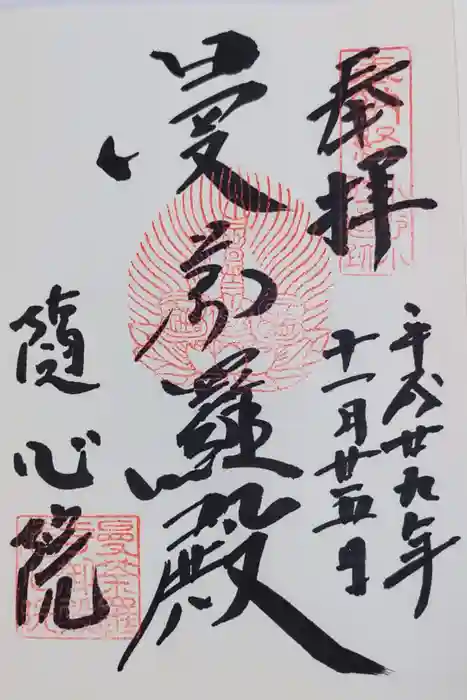 奉拝
平成廿九年
十一月廿五日
曼荼羅殿
隨心院